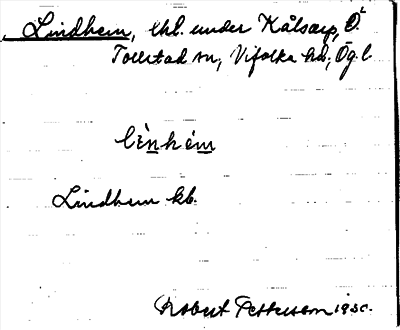 Lindhem, lhl. under Kålsarp, Ö.
Tollstad sn, Vifolka hd, Ög. l.
lìnhém
Lindhem kb.
Robert Pettersson 1930.